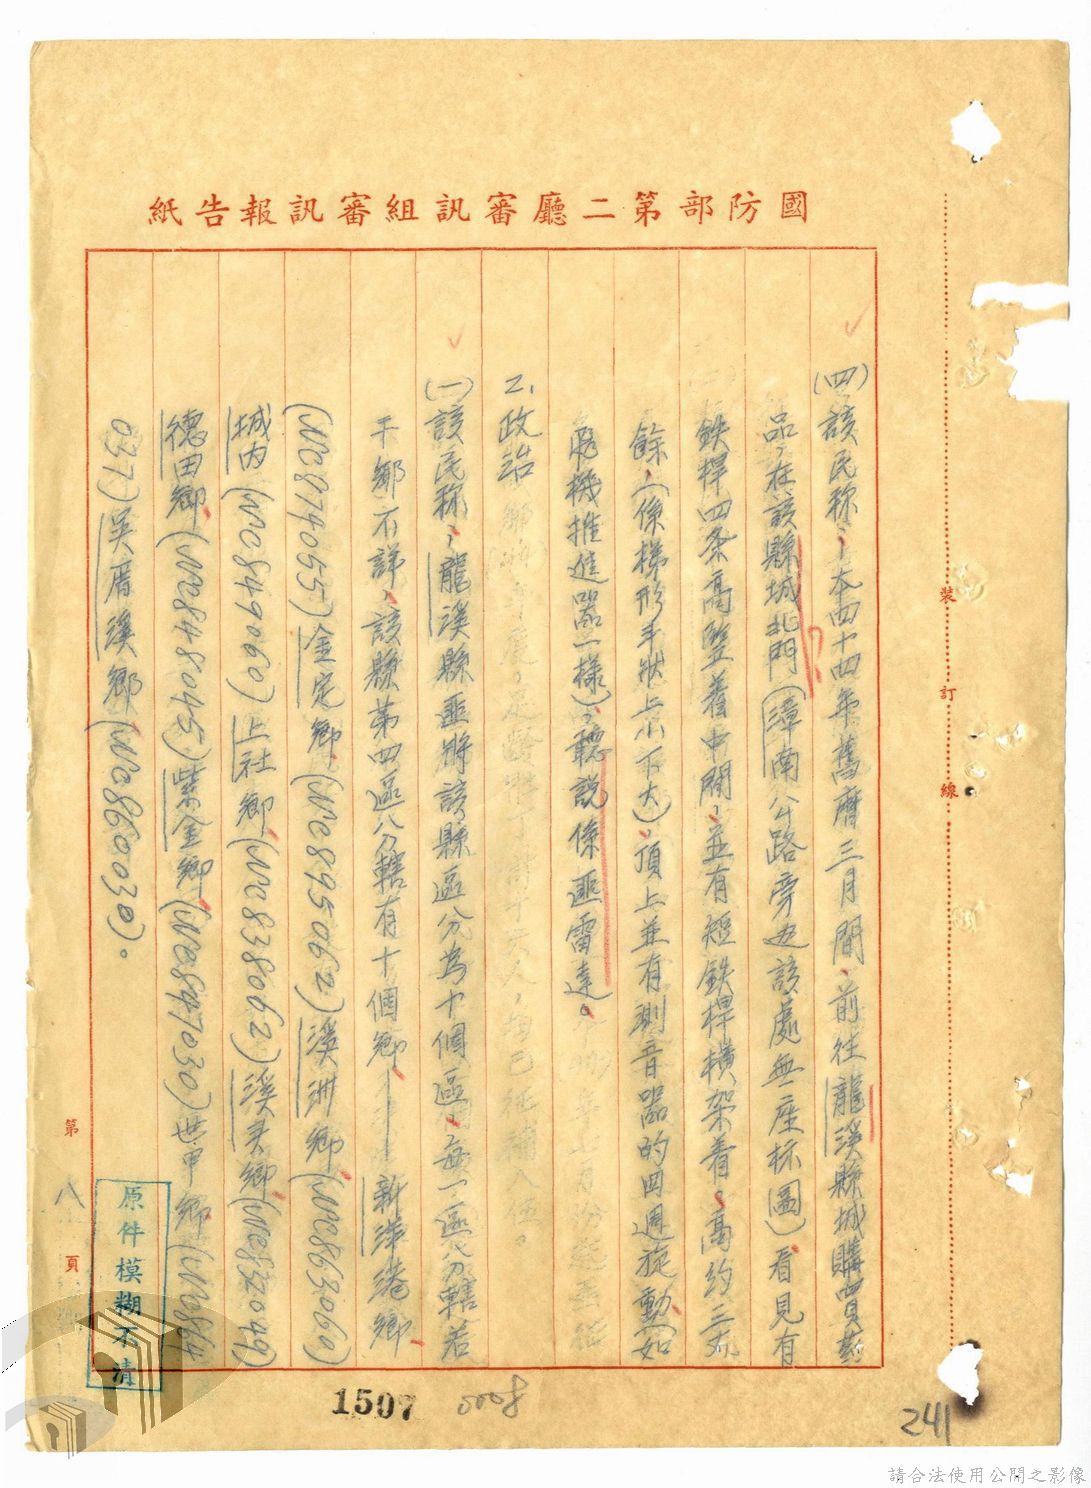 國防部第二廳審訊組審訊報告紙
(四)該民称:本四十四年舊曆三月間、前往龍溪縣城購買藥
品,在該縣城北門(漳南公路旁边該處無座标圖)看見有
鉄桿四条高豎着中間,並有短鉄桿橫架着,高約三丈
餘,(係梯形手狀上小下大)頂上並有測音器的四週旋動(如
飛機推進器一樣),聽說係匪雷達。
2、政治
(一)該民称,龍溪縣匪將該縣區分為十個區,每一區分轄若
干鄉不詳,該縣第四區分轄有十個鄉——新漳港鄉、
(NC874055)金定鄉(NC895062)溪洲鄉(NC863060)
城内(NC849060)上社鄉(NC838062)溪美鄉(NC872049)
德田鄉(NC848045)紫金鄉(NC847030)世甲鄉(NC864
037)吴厝溪鄉(NC860030)。
裝
訂
線
第八頁
原件模糊不清
1507
0008
241
請合法使用公開之影像